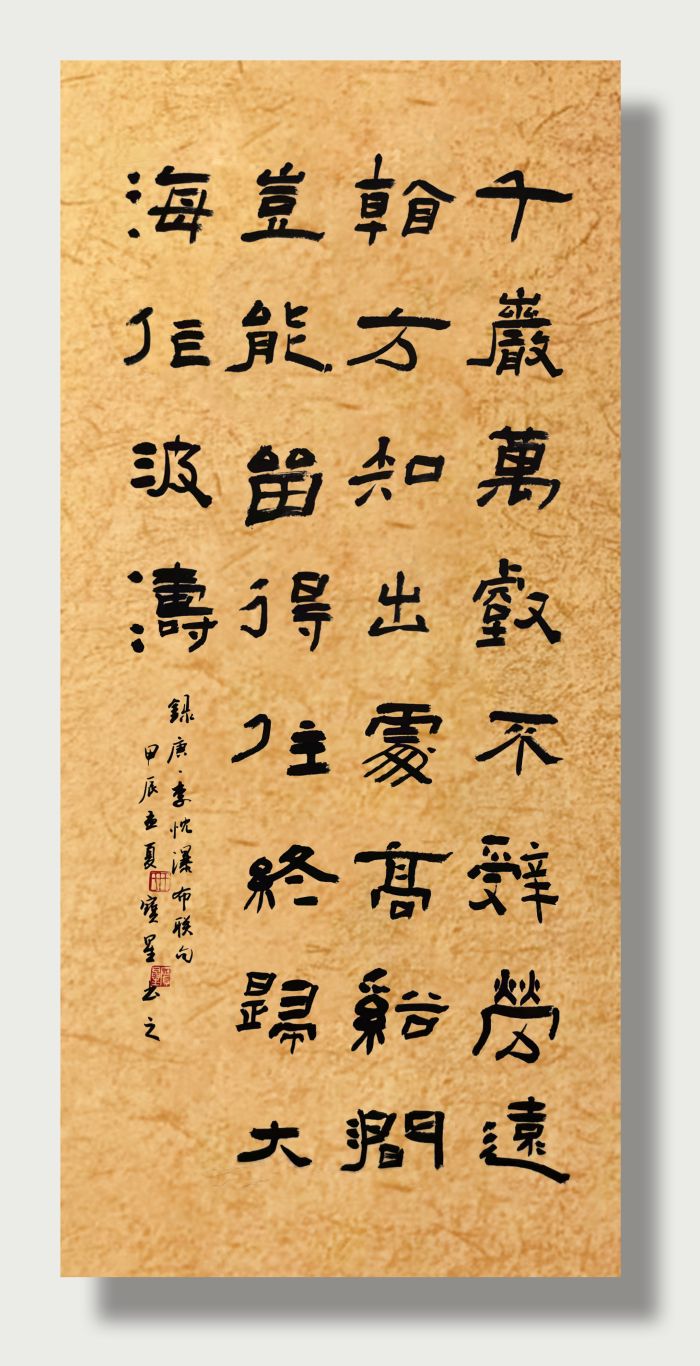 千巖萬壑不辭勞遠
看方知出處高谿澗
豈能留得住終歸大
海作波濤
錄唐·李忱瀑布联句
甲辰孟夏寶星书之